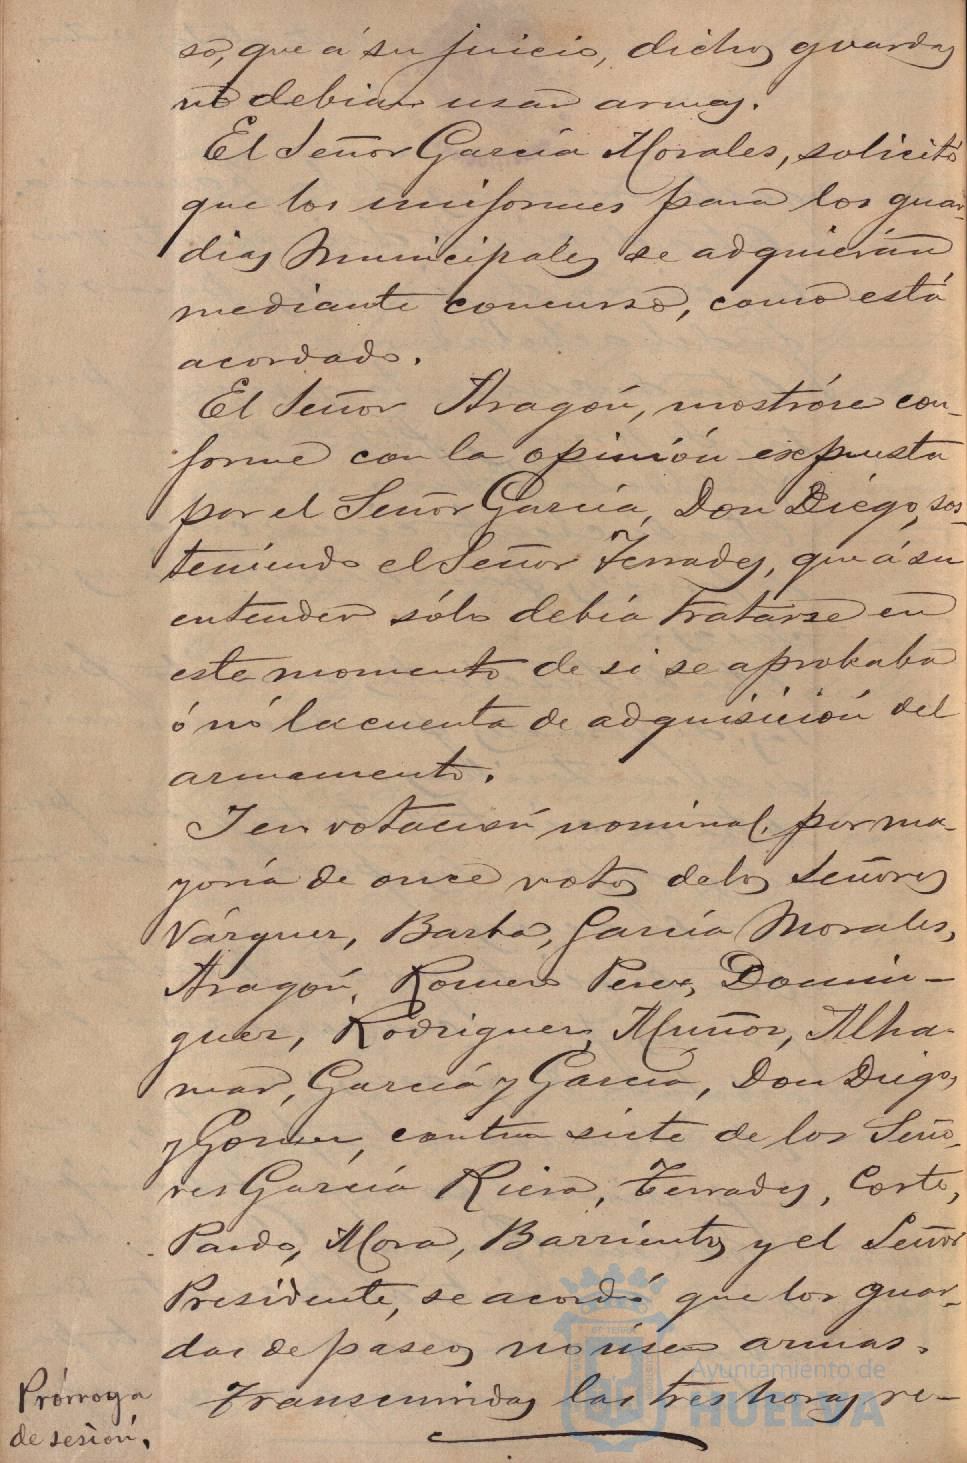 so, que á su juicio, dichos guardas
no debian usar armas.
El Señor García Morales, solicitó
que los uniformes para los guar-
dias Municipales se adquieran
mediante concurso, como está
acordado.
El Señor Aragón, mostróse con-
forme con la opinión expuesta
por el Señor García, Don Diégo, sos-
teniendo el Señor Terrades, que á su
entender sólo debía tratarse en
este momento de si se aprobaba
ó nó la cuenta de adquisición del
armamento.
Y en votación nominal, por ma-
yoría de once votos de los Señores
Vázquez, Barba, García Morales,
Aragón, Romero Perez, Domin-
guez, Rodriguez, Muñoz, Alha-
mar, García y García, Don Diego,
y Gomez, contra siete de los Seño-
res García Riera, Terrades, Corte,
Pardo, Mora, Barrientos y el Señor
Presidente, se acordó que los guar-
das de paseos no usen armas.
Prórroga
de sesión.
Transcurridas las tres horas re-
Ayuntamiento de
HUELVA